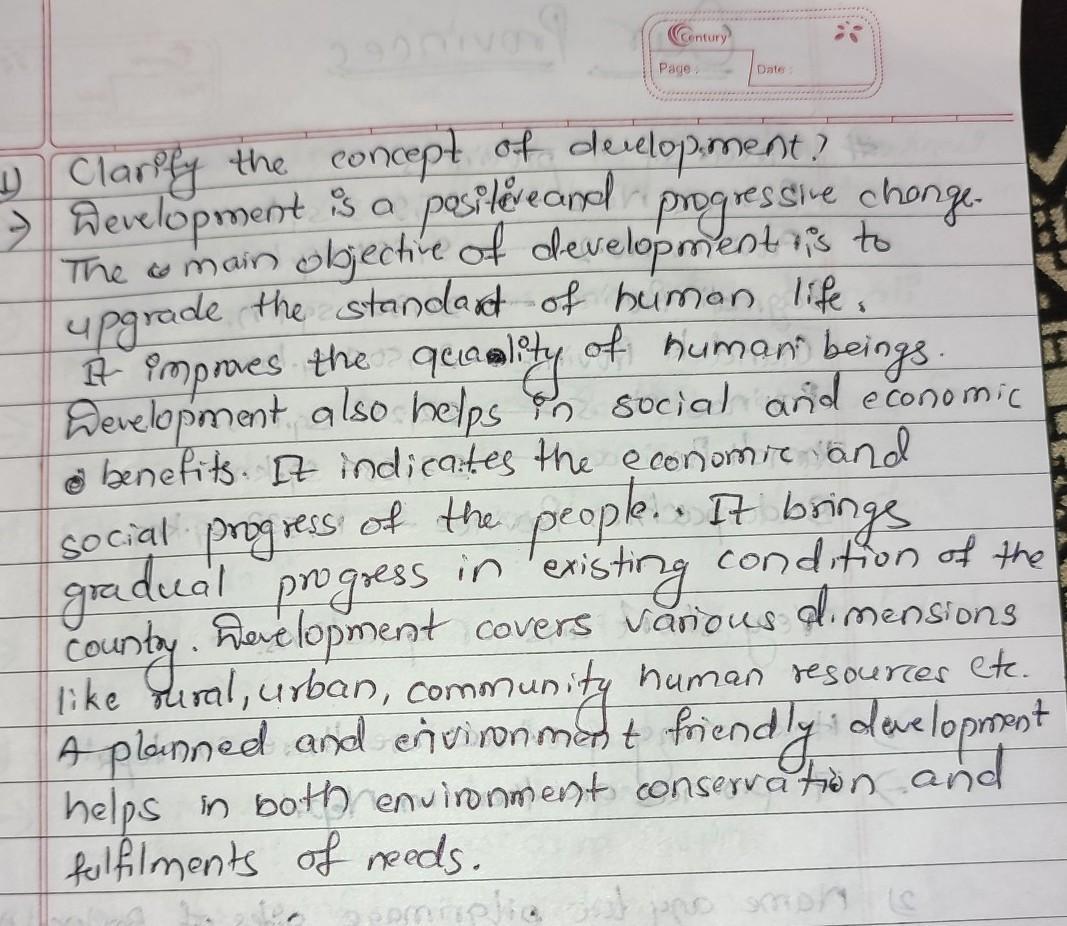 Century
Page :
Date :
1) Clarify the concept of development?
→ Development is a positive and progressive change.
The main objective of development is to
upgrade the standard of human life.
It improves the quality of human beings.
Development also helps in social and economic
benefits. It indicates the economic and
social progress of the people. It brings
gradual progress in existing condition of the
county. Development covers various dimensions
like rural, urban, community human resources etc.
A planned and environment friendly development
helps in both environment conservation and
fulfilments of needs.